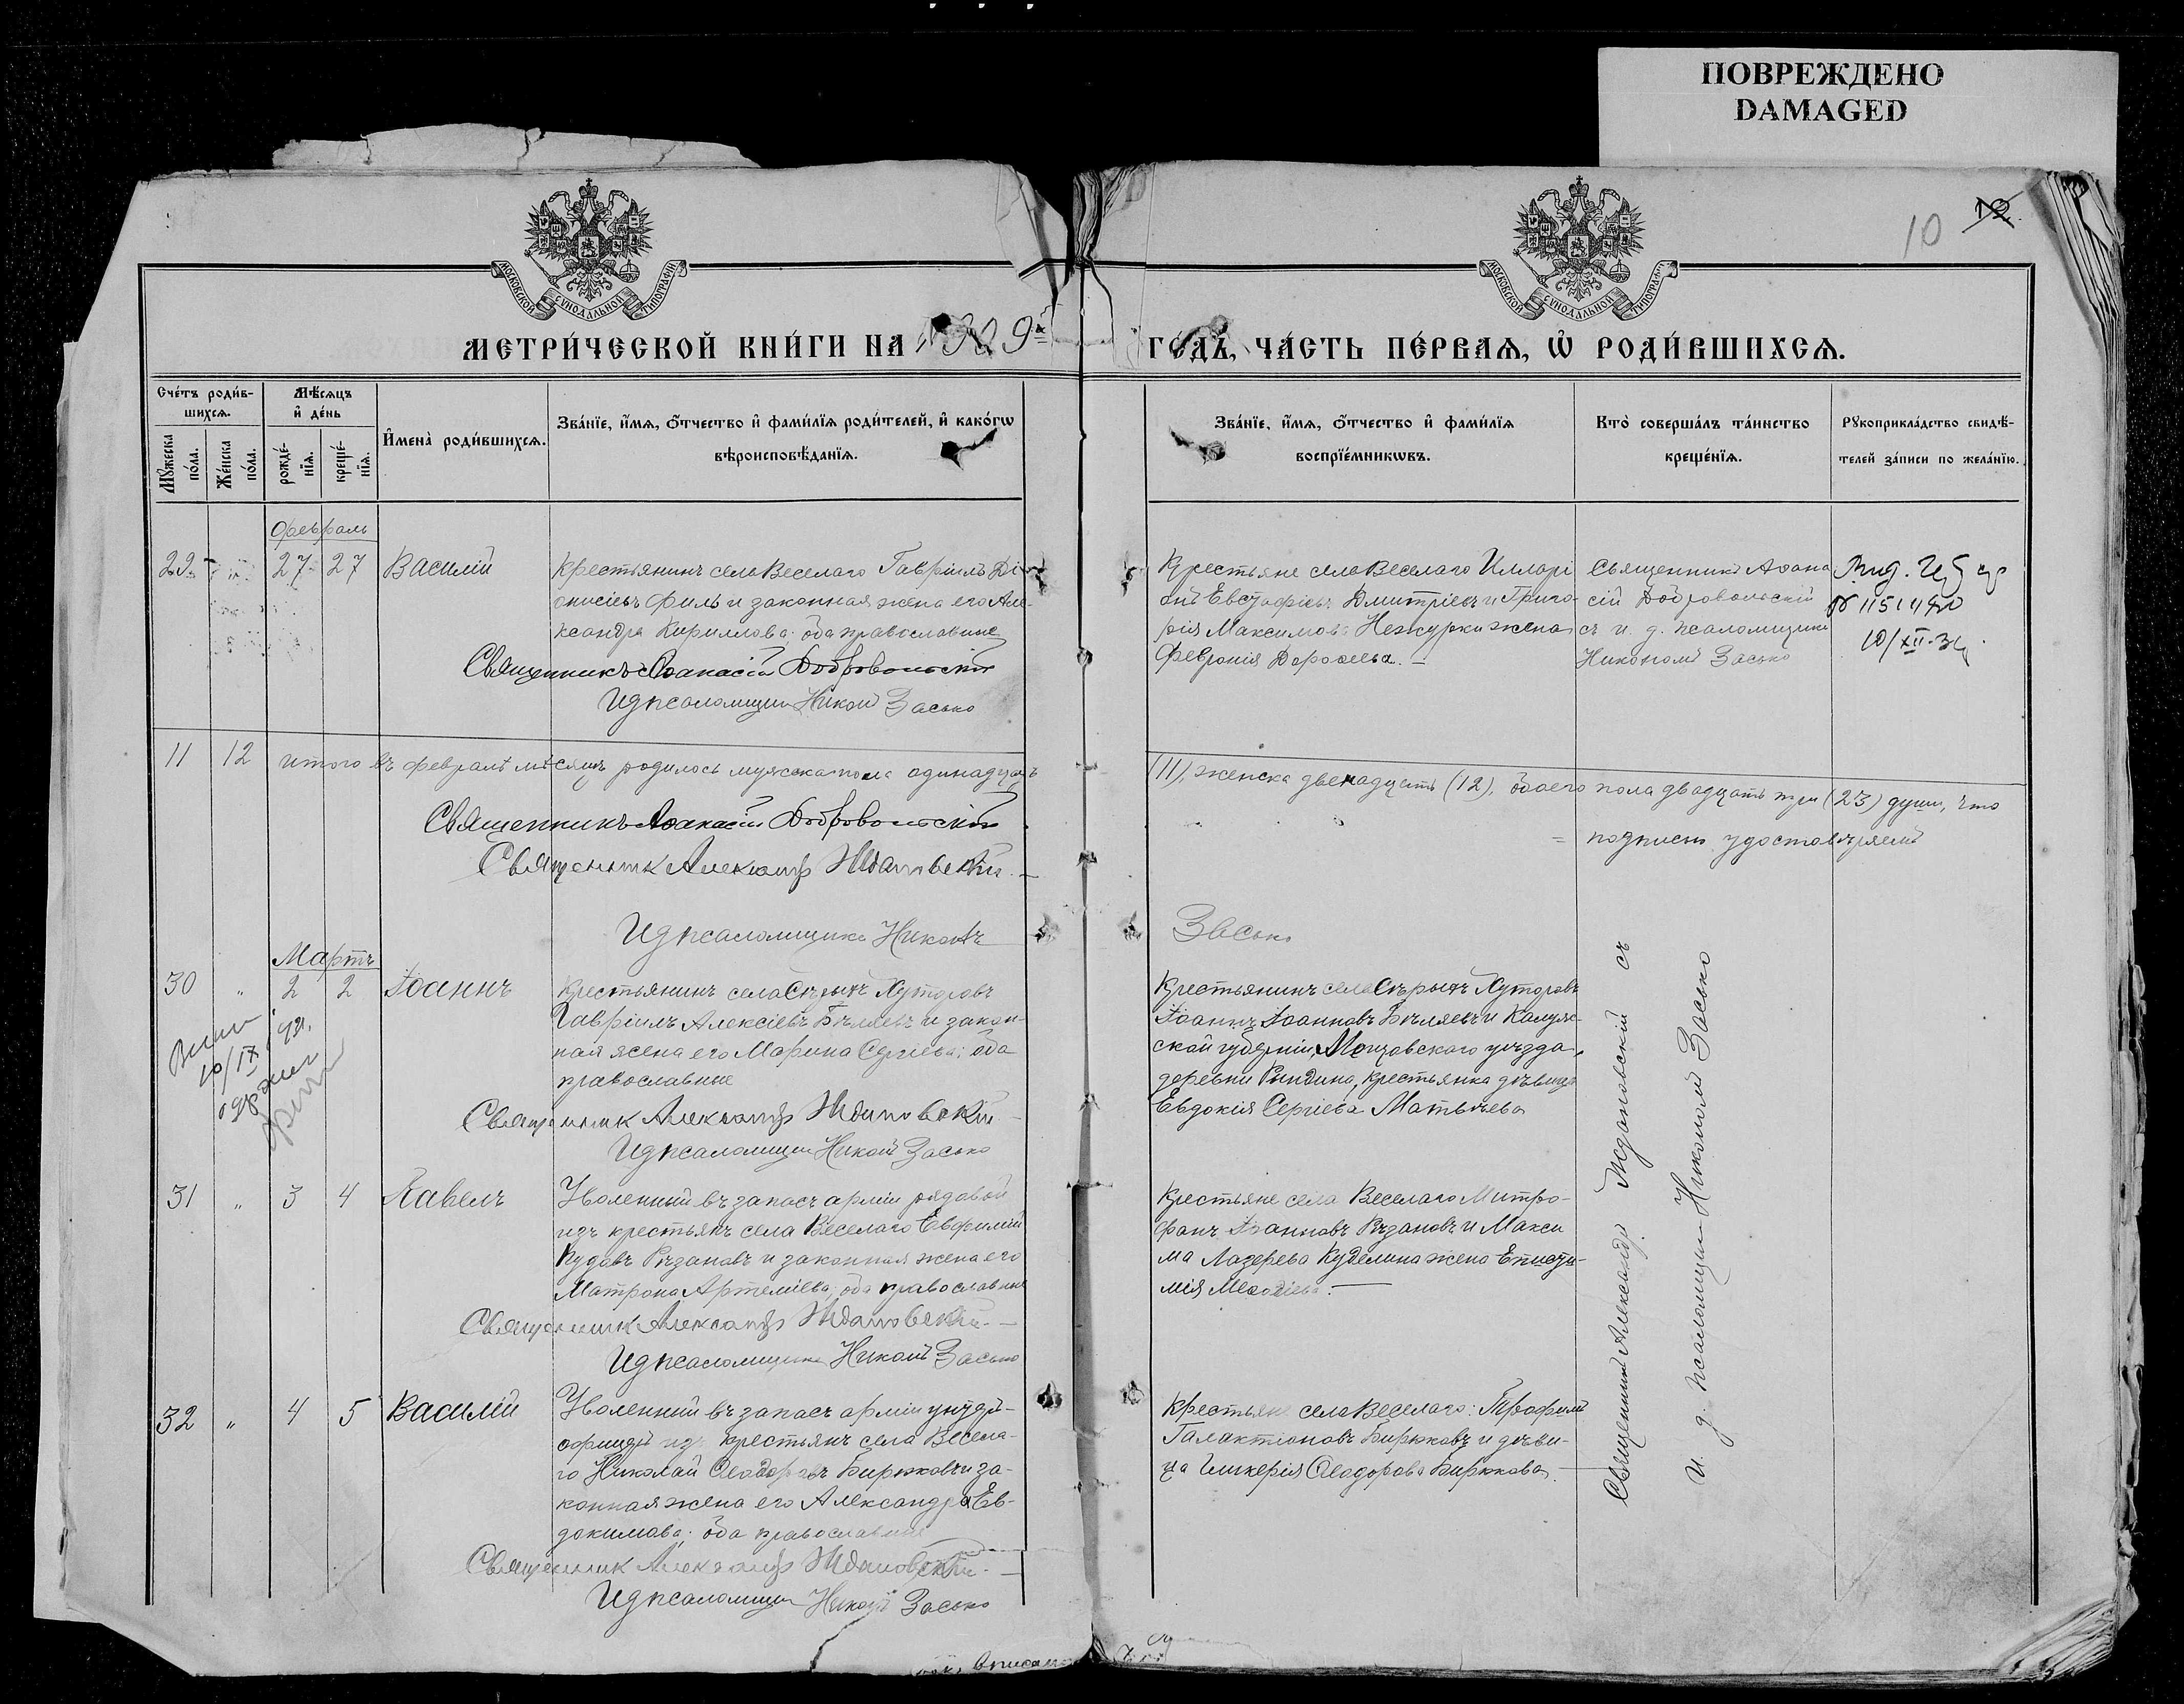 ПОВРЕЖДЕНО
DAMAGED
10
12.
МОСКОВСКОЙ СѴНОДАЛЬНОЙ ТИПОГРАФІИ
МОСКОВСКОЙ СѴНОДАЛЬНОЙ ТИПОГРАФІИ
МЕТРИ́ЧЕСКОЙ КНИ́ГИ НА 1909й
ГО́ДЪ, ЧА́СТЬ ПЕ́РВАѦ, Ѡ РОДИ́ВШИХСѦ.
Сче́тъ роди́в-
шихсѧ.
Мꙋжеска по́ла.
Же́нска по́ла.
Мѣ́сѧцъ
и҆ де́нь
рожде́-
нїѧ.
креще́-
нїѧ.
И҆мена̀ роди́вшихсѧ.
Зва́нїе, и҆́мѧ, ѻ҆́тчество и҆ фами́лїѧ роди́телей, и҆ како́гѡ
вѣроисповѣ́данїѧ.
Зва́нїе, и҆́мѧ, ѻ҆́тчество и҆ фами́лїѧ
воспрїе́мникѡвъ.
Кто̀ соверша́лъ та́инство
креще́нїѧ.
Рꙋкоприкла́дство свидѣ́-
телей за́писи по жела́нїю.
Февраль
29 27 27 Василій
Крестьянинъ села Веселаго Гавріилъ Ді-
онисіевъ Филь и законная жена его Але-
ксандра Кириллова; оба православные
Священникъ Аѳанасій Добровольскій
И д псаломщика Никонъ Засько
Крестьяне села Веселаго Илларі
онъ Евстафіевъ Дмитріевъ и Григо-
рія Максимова Нежурки жена
Февронія Дороѳеева. –
Священникъ Аѳана
сій Добровольскій
съ и. д. псаломщика
Никономъ Засько
10/XII
11 12 итого въ февралѣ мѣсяцѣ родилось мужска пола одинадцать
(11), женска двенадцать (12), обоего пола двадцать три (23) души, что
подписью удостовѣряемъ
Священникъ Аѳанасій Добровольскій
Священник Александр Ждановскій. –
И д псаломщика Никонъ
Засько
Мартъ
30 " 2 2 Іоаннъ
10/IX
Крестьянинъ села Сѣрыхъ Хуторовъ
Гавріилъ Алексіевъ Бѣляевъ и закон-
ная жена его Марина Сергіева; оба
православные
Священник Александр Ждановскій. –
И д псаломщика Никонъ Засько
Крестьянинъ села Сѣрыхъ Хуторовъ
Іоаннъ Іоанновъ Бѣляевъ и Калуж-
ской губерніи, Мещовскаго уѣзда,
деревни Рындина, крестьянка дѣвица
Евдокія Сергіева Матвѣева
Священникъ Александръ Ждановскій съ
и. д. псаломщика Никономъ Засько
31 " 3 4 Павелъ
Уволенный въ запасъ арміи рядовой
изъ крестьянъ села Веселаго Евфимій
Рѣзановъ и законная жена его
Матрона Артеміева, оба православные
Священник Александр Ждановскій. –
И д псаломщика Никонъ Засько
Крестьяне села Веселаго Митро-
фанъ Іоанновъ Рѣзановъ и Макси
ма Лазерева Куделина жена Еписти-
мія Меѳодіева. –
32 " 4 5 Василій
Уволенный въ запасъ арміи унтеръ-
офицеръ изъ крестьянъ села Весела-
го Николай Ѳеодоровъ Бирюковъ и за-
конная жена его Александра Ев-
докимова; оба православные
Священник Александр Ждановскій. –
И д псаломщика Никонъ Засько
Крестьяне села Веселаго: Трофимъ
Галактіоновъ Бирюковъ и дѣви-
ца Гликерія Ѳеодорова Бирюкова. –